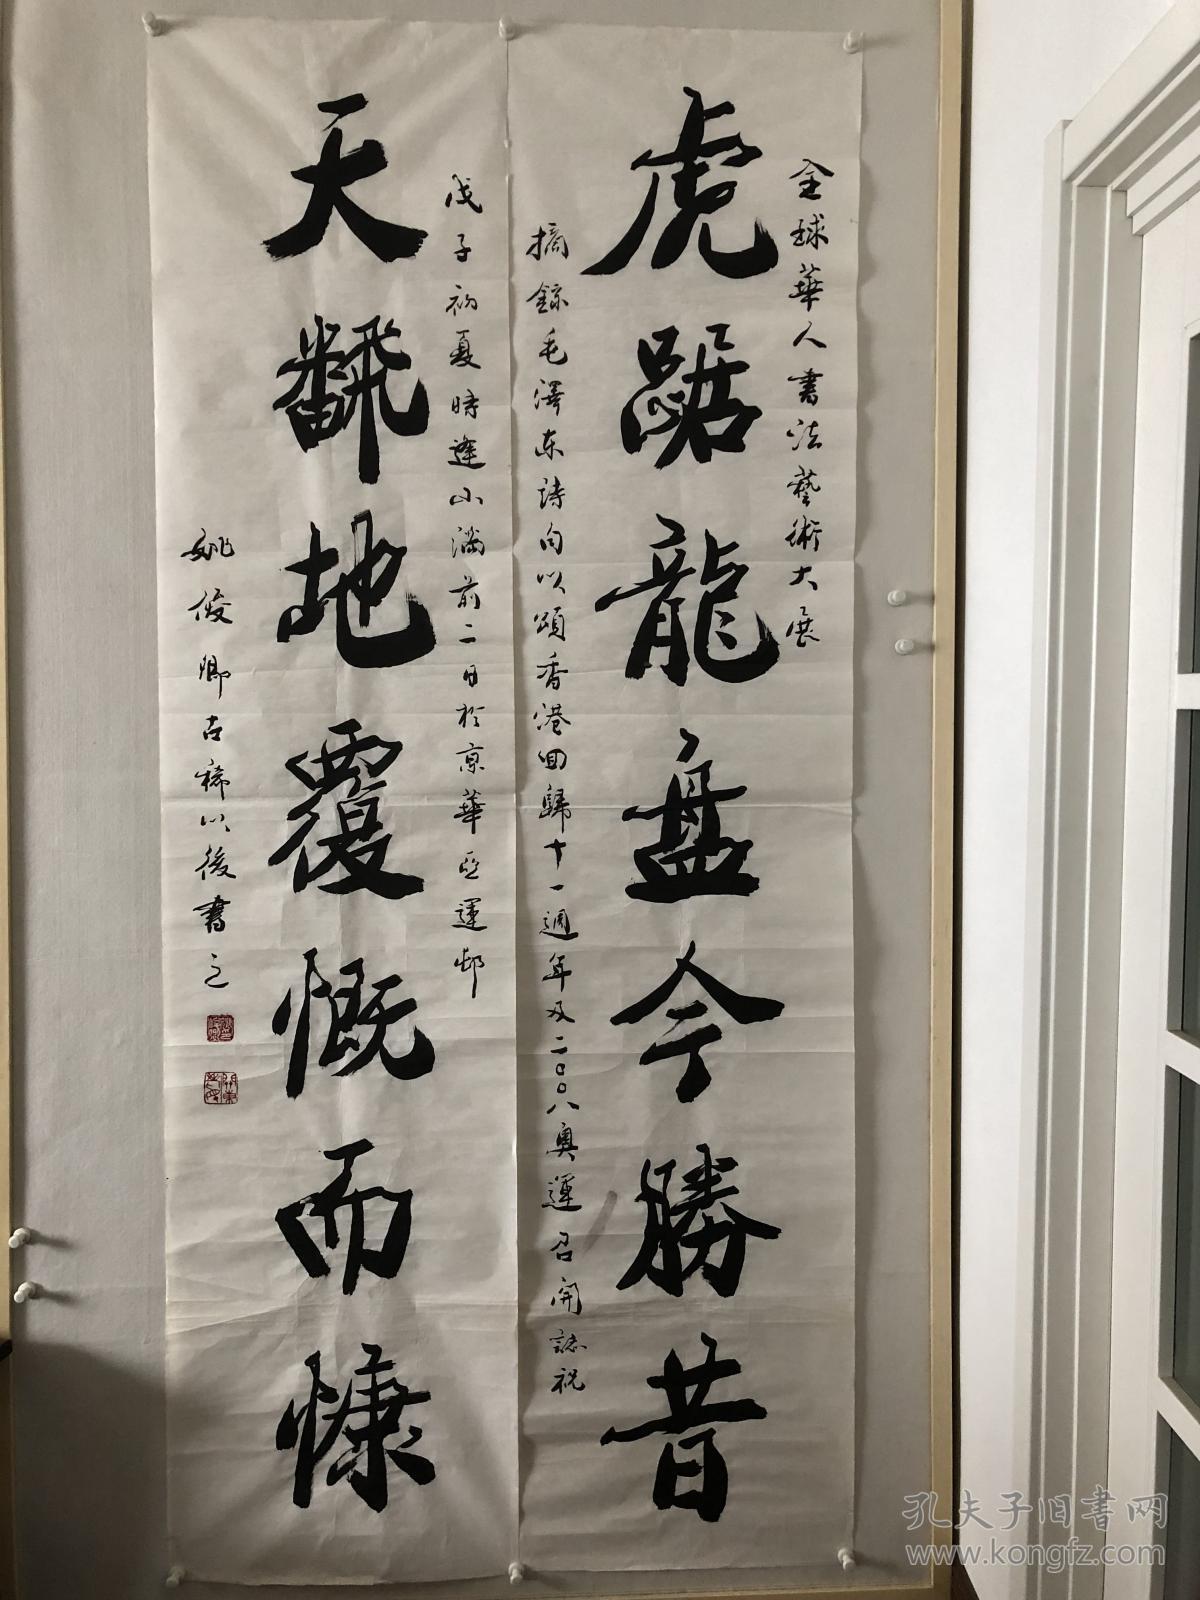 全球華人書法藝術大展
虎踞龍盤今勝昔
摘錄毛澤東詩句以頌香港回歸十一週年及二〇〇八奧運召開誌祝
戊子初夏時逢小滿前二日於京華亞運邨
天翻地覆慨而慷
姚俊卿古稀以後書之
孔夫子旧书网
www.kongfz.com